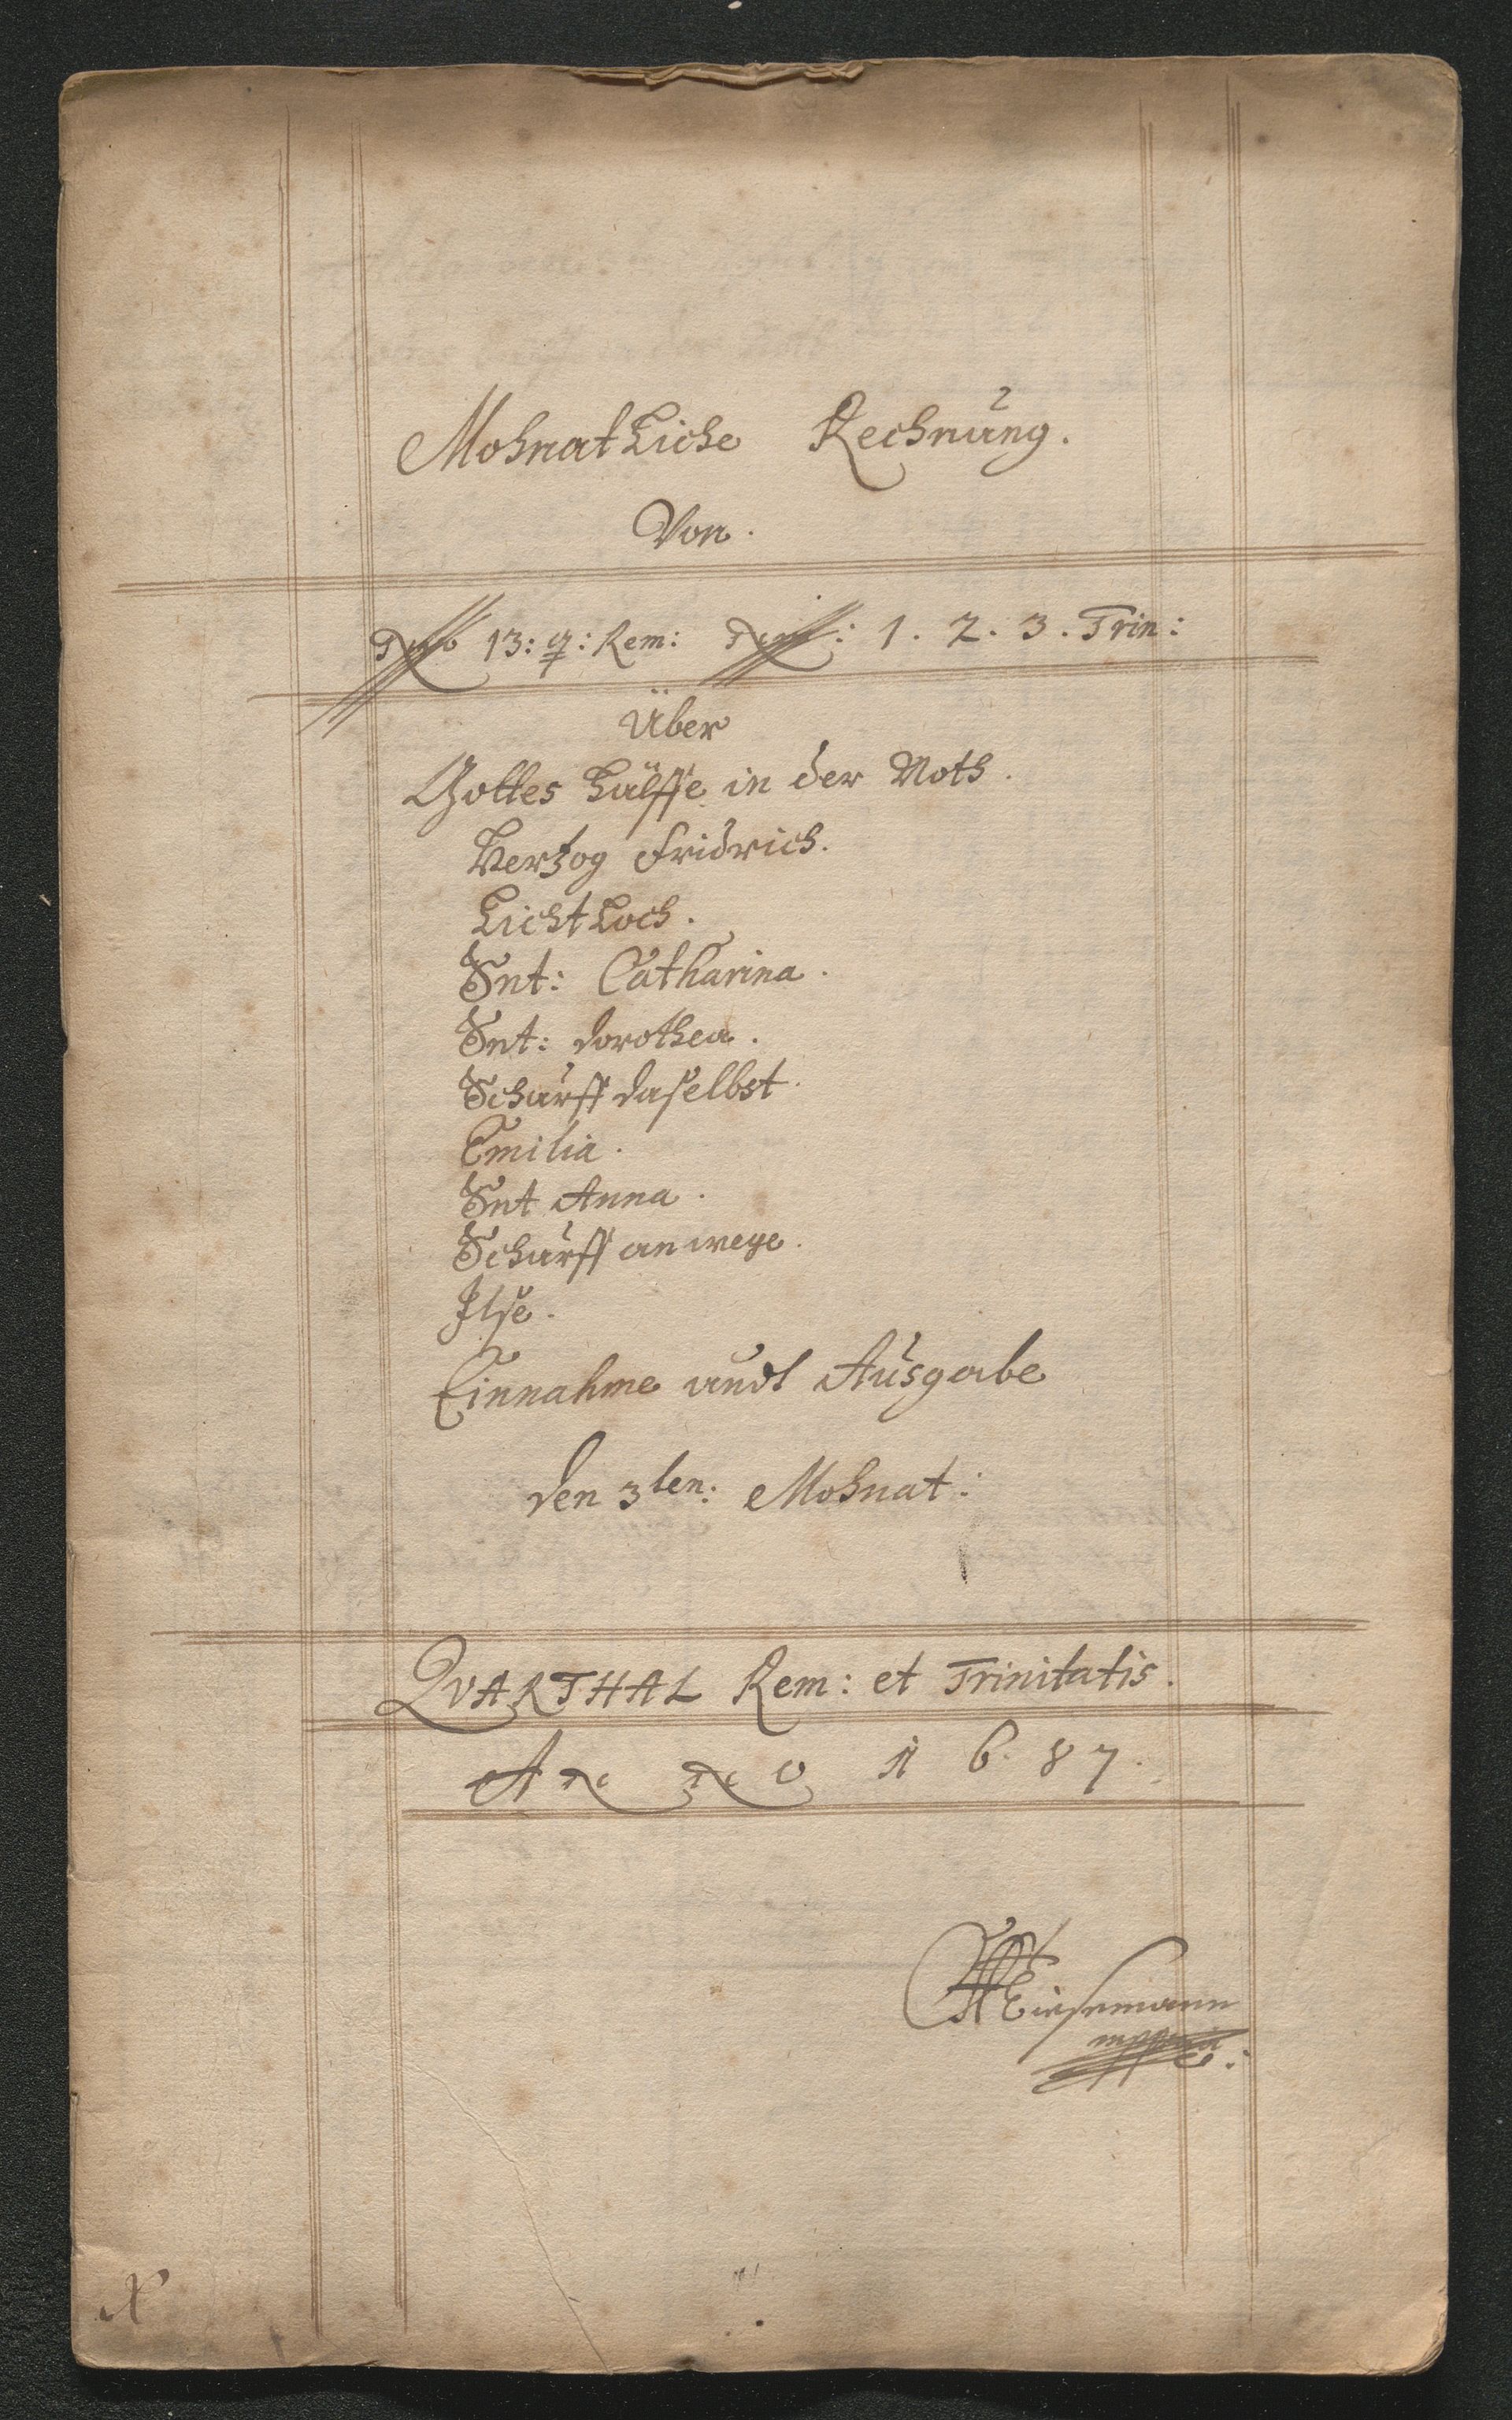 Mohnatliche Rechnung.
Von.
No 13: q: Rem: No: 1. 2. 3. Trin:
Über
Gottes hülffe in der Noth.
Hertzog Fridrich.
Lichtloch.
Snt: Catharina.
Snt: Dorothea.
Schurff daselbst.
Emilia.
Snt Anna.
Schurff an wege.
Ilse.
Einnahme undt Ausgabe
den 3ten: Mohnat:
QVARTHAL Rem: et Trinitatis.
Anno 1687.